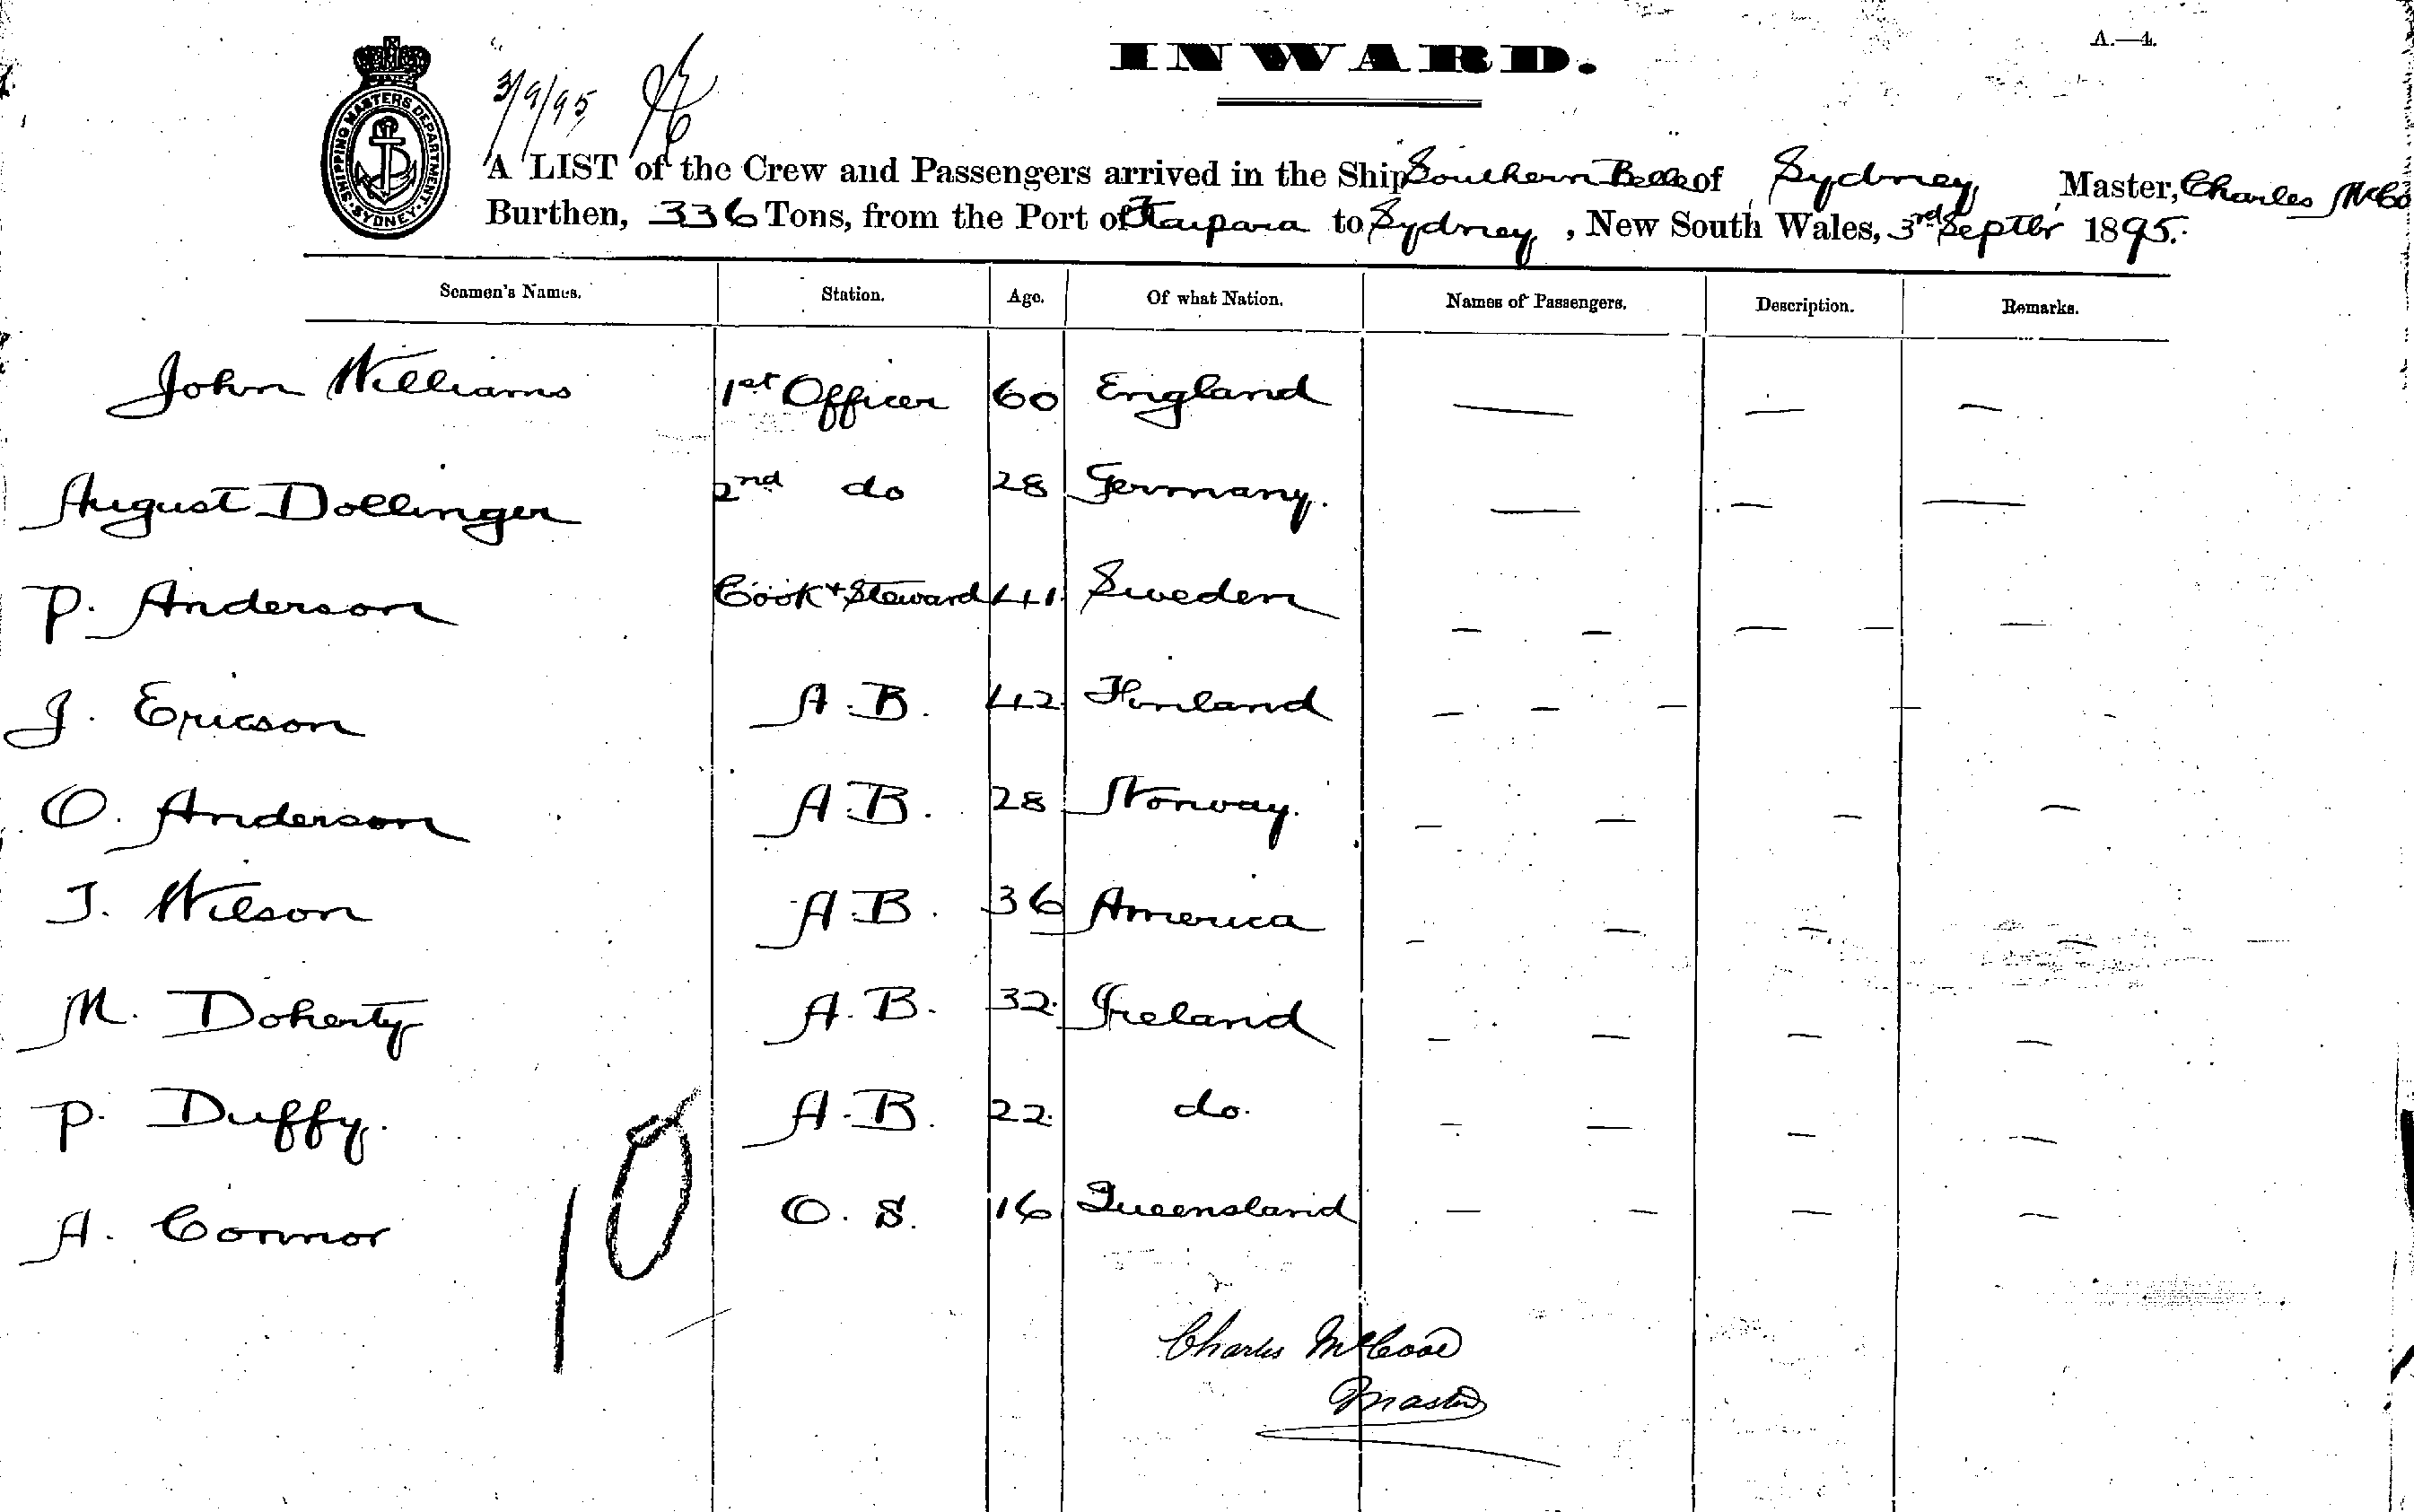 INWARD.
A.—4.
SHIPPING MASTERS DEPARTMENT
SYDNEY
3/9/95
A LIST of the Crew and Passengers arrived in the Ship Southern Belle of Sydney, Master, Charles McCo
Burthen, 336 Tons, from the Port of Kaipara to Sydney, New South Wales, 3rd Septbr 1895.
Seamen's Names. Station. Age. Of what Nation. Names of Passengers. Description. Remarks.
John Williams 1st Officer 60 England — — —
August Dollinger 2nd do 28 Germany. — — —
P. Anderson Cook + Steward 41 Sweden — — — — —
J. Ericson A.B. 42 Finland — — — — -
O. Anderson A.B. 28 Norway. — — — —
J. Wilson A.B. 36 America — — — —
M. Doherty A.B. 32 Ireland — — — —
P. Duffy. A.B. 22 do. — — — —
A. Connor O.S. 16 Queensland — — — —
10
Charles
Master